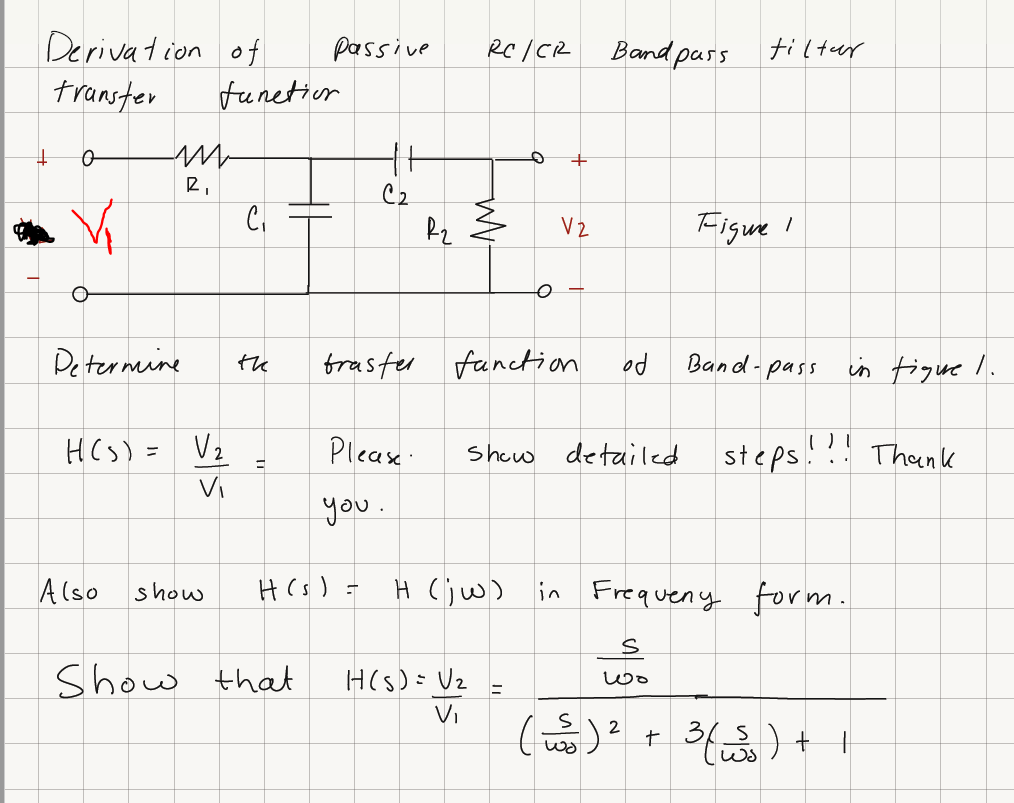 Derivation of passive RC/CR Bandpass filter
transfer function
+ R1 C2 +
V1 C1 R2 V2 Figure 1
- -
Determine the trasfer function od Band-pass in figure 1.
H(s) = V2/V1 = Please. show detailed steps!!! Thank
you.
Also show H(s) = H(jw) in Frequeny form.
Show that H(s) = V2/V1 = (s/ω0) / ((s/ω0)² + 3(s/ω0) + 1)